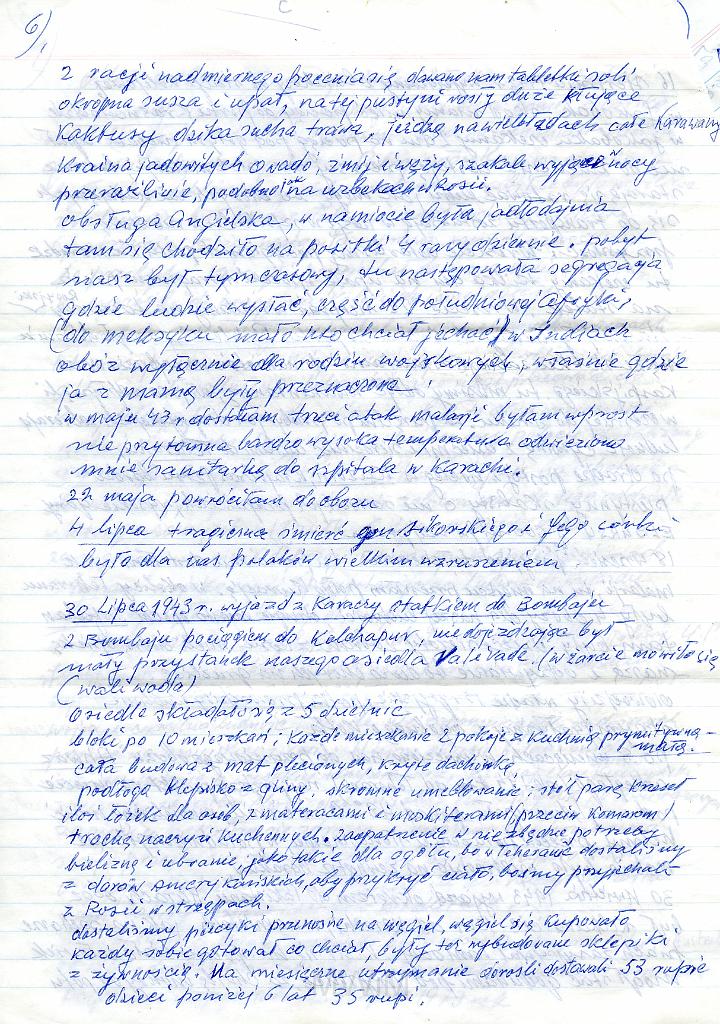 6/,
z racji nadmiernego pocenia się dawano nam tabletki soli
okropna susza i upał, na tej pustyni rosły duże kłujące
Kaktusy dzika sucha trawa, jeżdżą na wielbłądach całe Karawany
Kraina jadowitych owadó, żmij i węży, szakale wyjące nocy
przeraźliwie, podobnie jak na uzbekach w Rosii.
obsługa Angielska, w namiocie była jadłodajnia
tam się chodziło na posiłki 4 razy dziennie. pobyt
nasz był tymczasowy, tu następowała segregacja
gdzie ludzie wysłać, część do południowej Afryki,
(do meksyku mało kto chciał jechać) w Indiach
obóz wyłącznie dla rodzin wojskowych, właśnie gdzie
ja z mamą były przeznaczone.
w maju 43 r dostałam trzeci atak malarji byłam wprost
nieprzytomna bardzo wysoka temperatura odwieziono
mnie sanitarką do szpitala w Karachi.
22 maja powróciłam do obozu
4 lipca tragiczna śmierć gen Sikorskiego i Jego córki
było dla nas polaków wielkim wzruszeniem.
30 Lipca 1943 r. wyjazd z Karaczy statkiem do Bombaju
z Bombaju pociągiem do Kolohapur, nie dojeżdżając był
mały przystanek naszego osiedla Valivade. (w żarcie mówiło się
(wali wadla)
Osiedle składało się z 5 dzielnic
bloki po 10 mieszkań; każde mieszkanie 2 pokoje z kuchnią prymitywną -
małą.
cała budowa z mat plecionych, kryte dachówką,
podłoga klepisko z gliny, skromne umeblowanie; stół parę krzeseł
ilość łóżek dla osób, z materacami i moskiterami (przeciw komarom)
trochę naczyń kuchennych. Zaopatrzenie w niezbędne potrzeby
bieliznę i ubranie, jako takie dla ogółu, bo w Teheranie dostaliśmy
z darów amerykańskich, aby przykryć ciało, bośmy przyjechali
z Rosii w strzępach.
dostaliśmy piecyki przenośne na węgiel, węgiel się kupowało
każdy sobie gotował co chciał, były też wybudowane sklepiki
z żywnością. Na miesięczne utrzymanie dorośli dostawali 53 rupie
dzieci poniżej 6 lat 35 rupi.